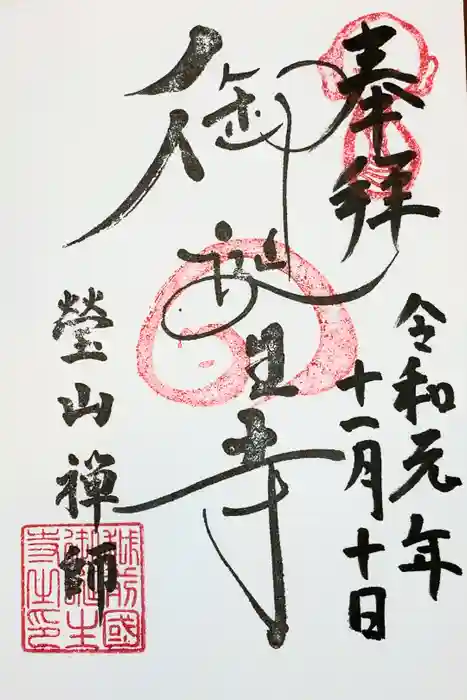 奉拝
令和元年
十一月十日
御誕生寺
瑩山禅師
越前國
御誕生
寺之印